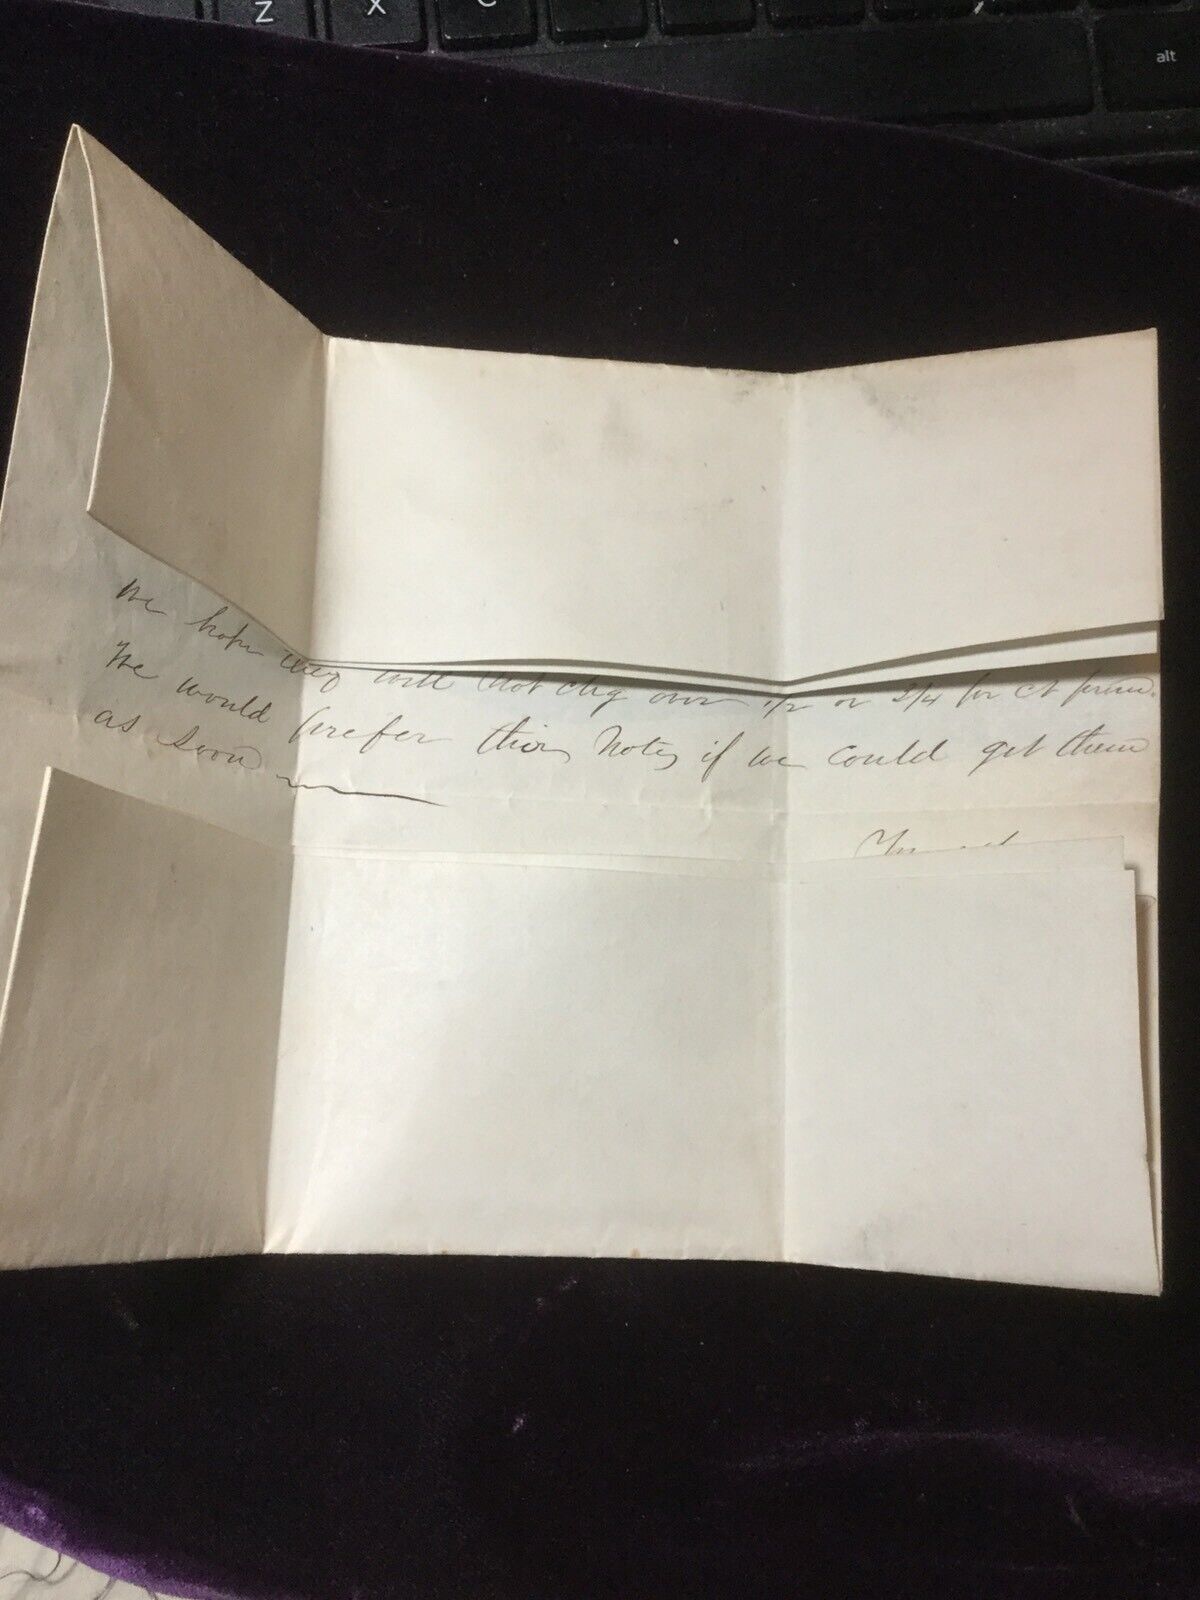 Z X C
alt
We hope they will not chg over 1/2 or 3/4 per ct prem.
We would prefer their Notes if we could get them
as soon